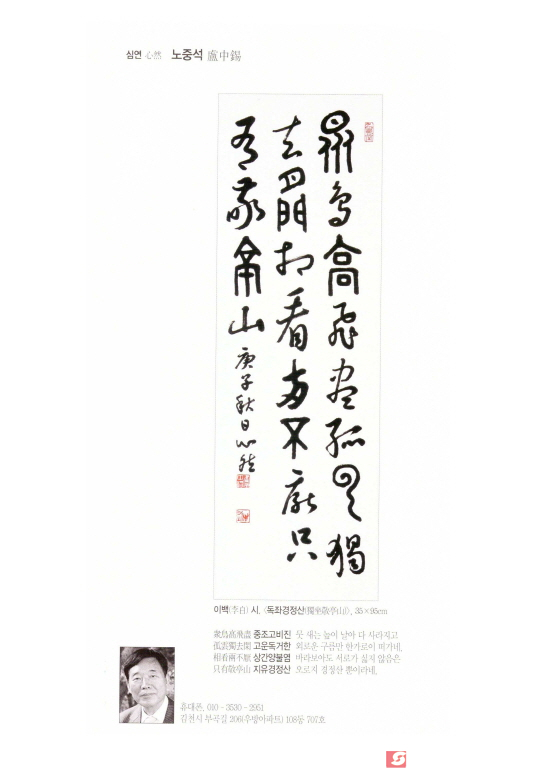 심연 心然 노중석 盧中錫
衆鳥高飛盡孤雲獨
去閒相看兩不厭只
有敬亭山 庚子秋日心然
이백(李白) 시, 〈독좌경정산(獨坐敬亭山)〉, 35×95cm
衆鳥高飛盡 중조고비진 뭇 새는 높이 날아 다 사라지고
孤雲獨去閒 고운독거한 외로운 구름만 한가로이 떠가네,
相看兩不厭 상간양불염 바라보아도 서로가 싫지 않음은
只有敬亭山 지유경정산 오로지 경정산 뿐이라네,
휴대폰, 010-3530-2951
김천시 부곡길 206(우방아파트) 108동 707호